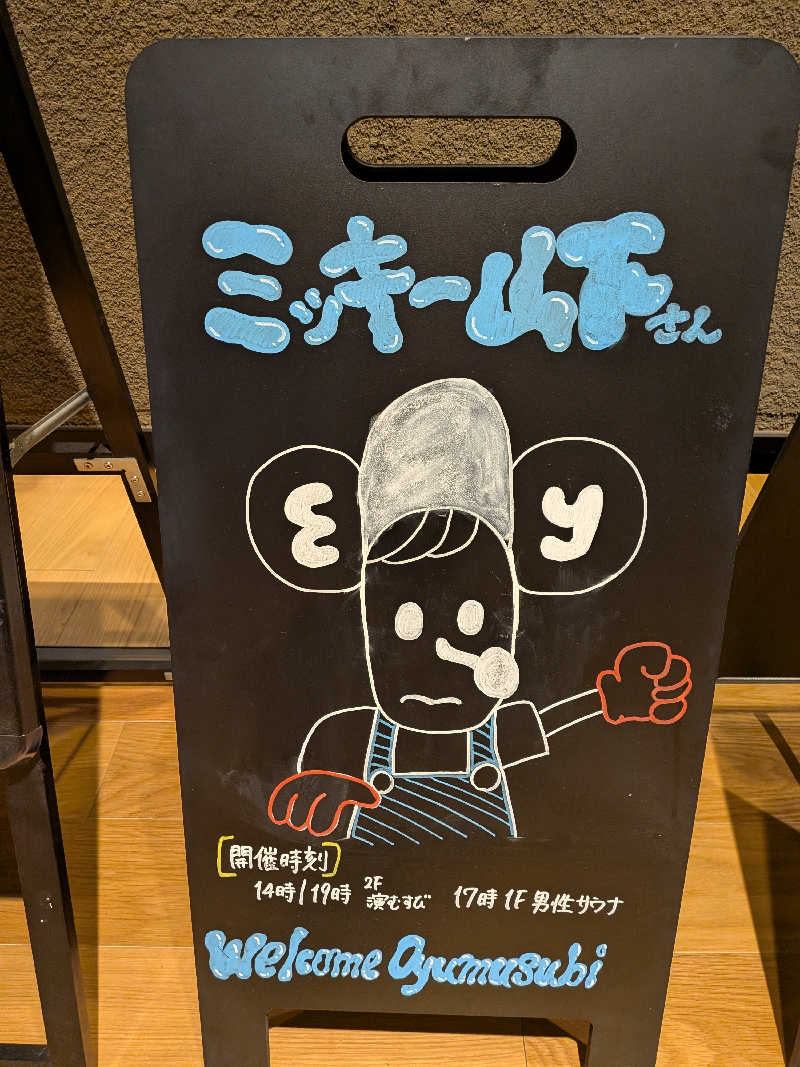 ミッキー山下さん
ミ y
[開催時刻]
14時/19時 2F 湶むすび 17時 1F 男性サウナ
Welcome Oyumusubi